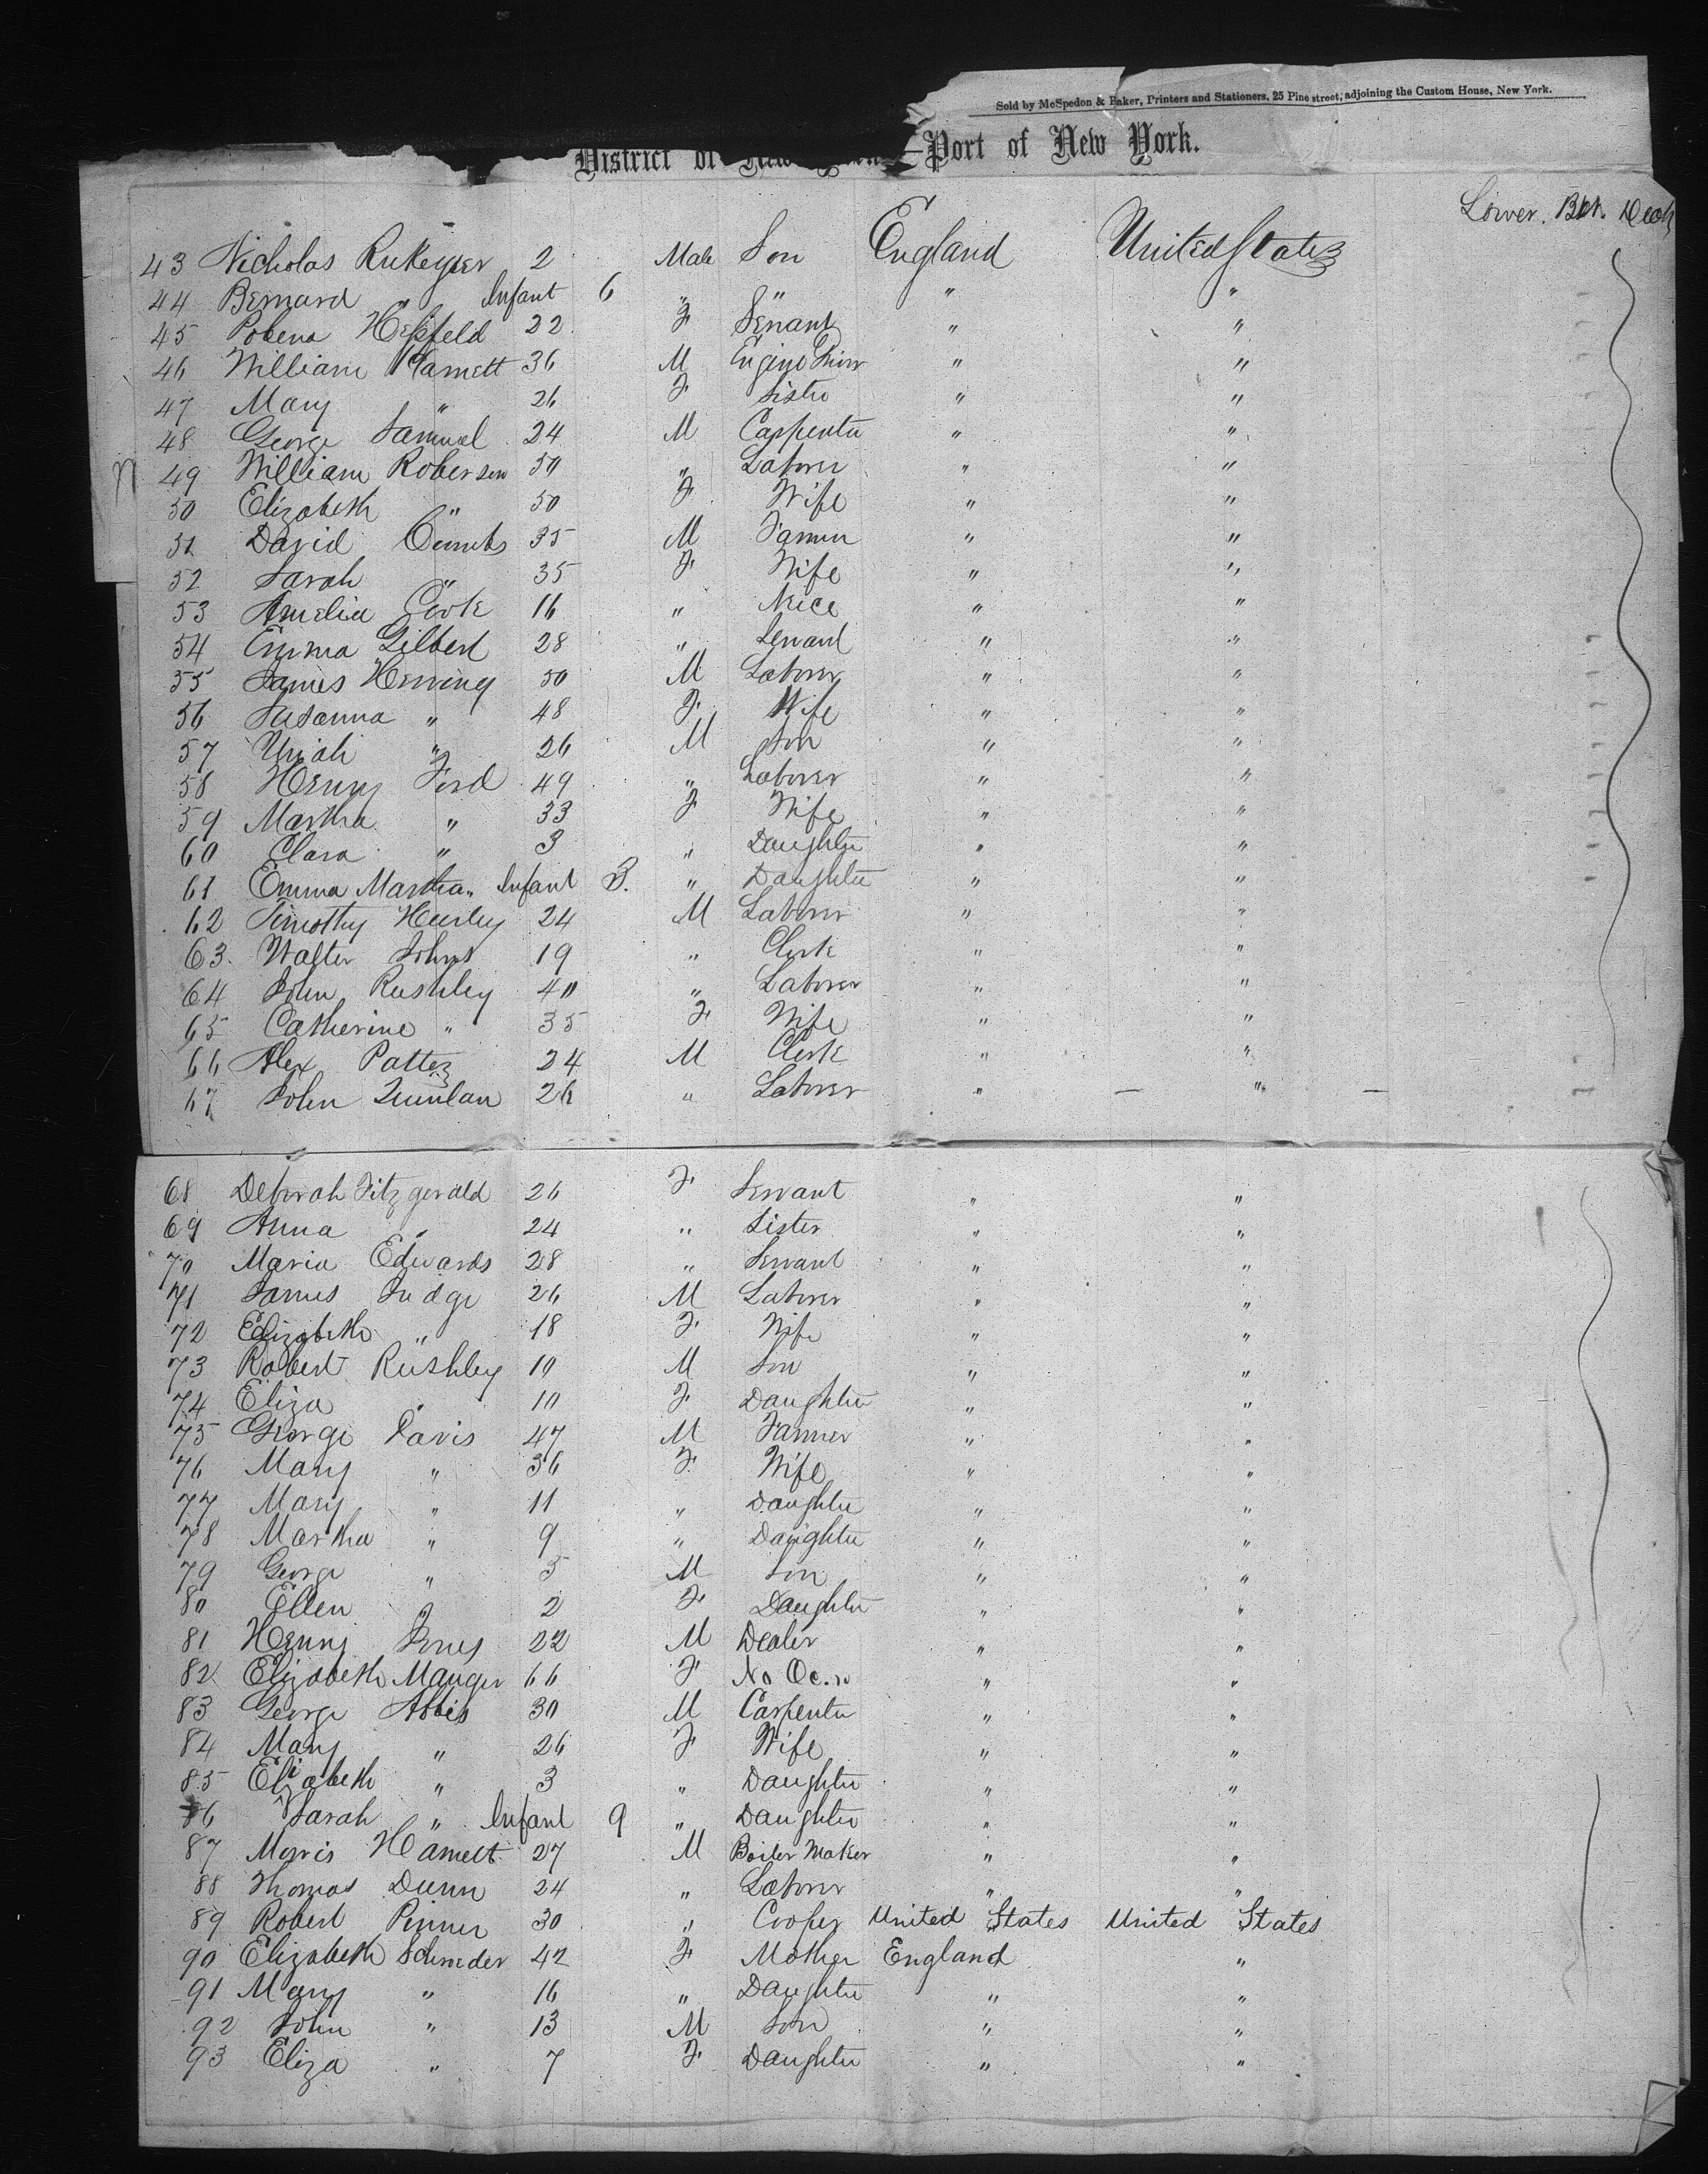 Sold by McSpedon & Baker, Printers and Stationers, 25 Pine street, adjoining the Custom House, New York.
District of New York—Port of New York.
Lower. Deck
43 Nicholas Rukeyser 2 Male Son England United States
44 Bernard " Infant 6 " S " " "
45 22 F Servant " "
46 William Hamett 36 M Engine Driver " "
47 Mary " 26 F Sister " "
48 George Samuel 24 M Carpenter " "
49 William Roberson 50 " Laborer " "
50 Elizabeth " 50 F Wife " "
51 David Cumbs 35 M Farmer " "
52 Sarah " 35 F Wife " "
53 Amelia Cook 16 " Neice " "
54 Emma Gilbert 28 " Servant " "
55 James Herring 50 M Laborer " "
56 Susanna " 48 F Wife " "
57 Uriah " 26 M Son " "
58 Henry Ford 49 " Laborer " "
59 Martha " 33 F Wife " "
60 Clara " 3 " Daughter " "
61 Emma Martha " Infant 3. " Daughter " "
62 Timothy Hurley 24 M Laborer " "
63. Walter Johns 19 " Clerk " "
64 John Rushley 40 " Laborer " "
65 Catherine " 35 F Wife " "
66 Alex Potter 24 M Clerk " "
67 John Quinlan 26 " Laborer " — " —
68 Deborah Fitzgerald 26 F Servant " "
69 Anna " 24 " Sister " "
70 Maria Edwards 28 " Servant " "
71 James Judge 26 M Laborer " "
72 Elizabeth " 18 F Wife " "
73 Robert Rushley 10 M Son " "
74 Eliza " 10 F Daughter " "
75 George Davis 47 M Farmer " "
76 Mary " 36 F Wife " "
77 Mary " 11 " Daughter " "
78 Martha " 9 " Daughter " "
79 George " 5 M Son " "
80 Ellen " 2 F Daughter " "
81 Henry Jones 22 M Dealer " "
82 Elizabeth Mauger 66 F No Oc.n " "
83 George Abbis 30 M Carpenter " "
84 Mary " 26 F Wife " "
85 Elizabeth " 3 " Daughter " "
86 Sarah " Infant 9 " Daughter " "
87 Morris Hamett 27 M Boiler Maker " "
88 Thomas Dunn 24 " Laborer " "
89 Robert Pinner 30 " Cooper United States United States
90 Elizabeth Schroeder 42 F Mother England "
91 Mary " 16 " Daughter " "
92 John " 13 M Son " "
93 Eliza " 7 F Daughter " "